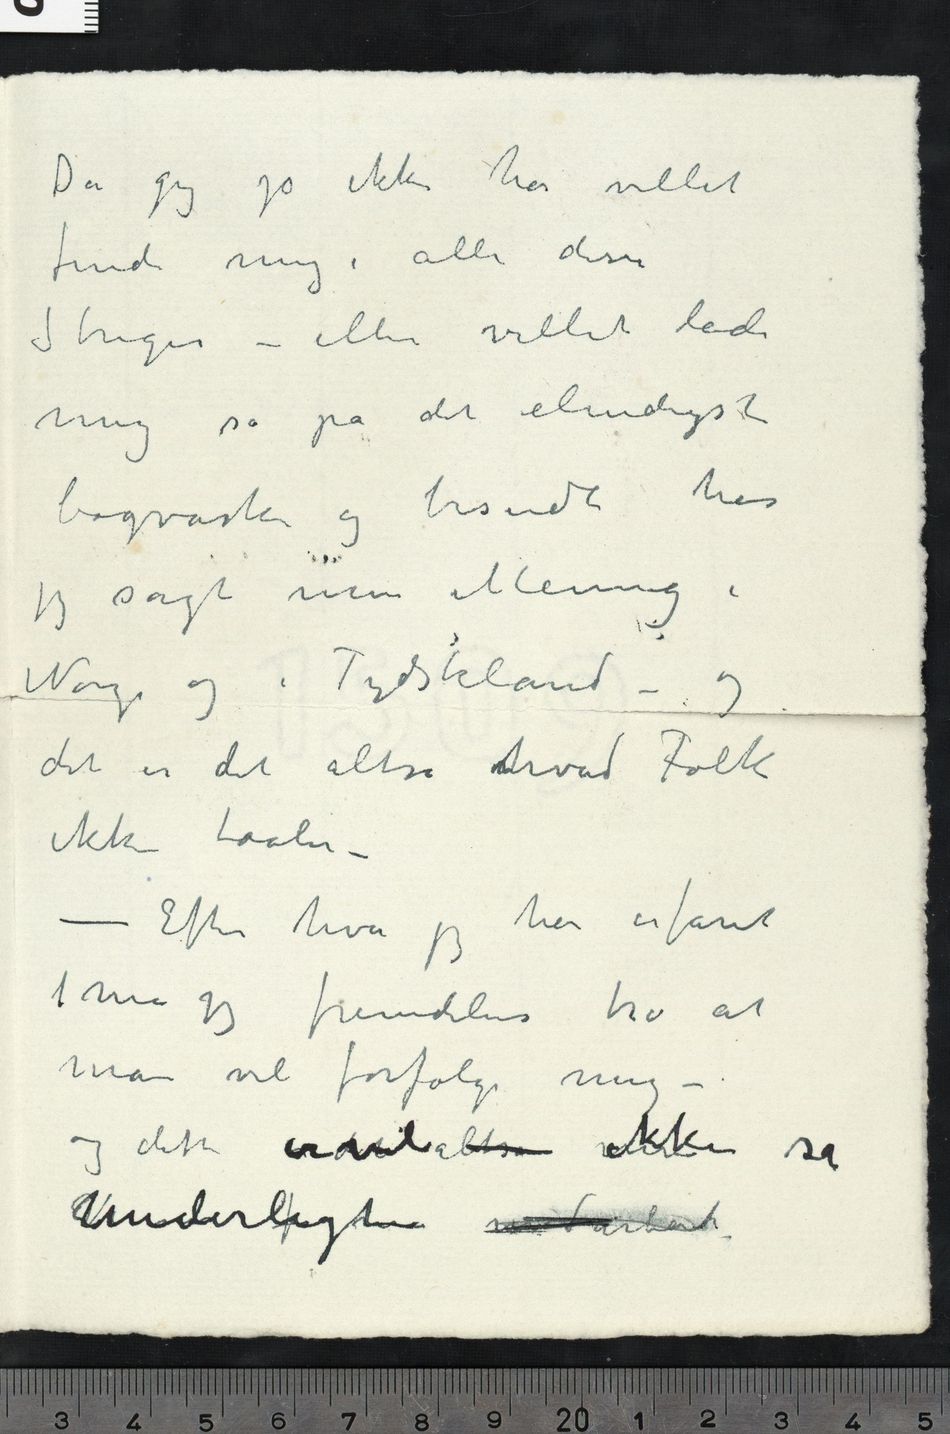 Da jeg jo ikke har villet
finde mig i alle disse
Streger – eller villet lade
mig så på det elendigste
bagvaske og besudle har
jeg sagt min Mening i
Norge og i Tydskland – og
det er det altså hvad Folk
ikke taaler –
— Efter hva jeg har erfaret
må jeg fremdeles tro at
man vil forfølge mig –
og dette er vel altså ikke så
Underligt
3 4 5 6 7 8 9 20 1 2 3 4 5